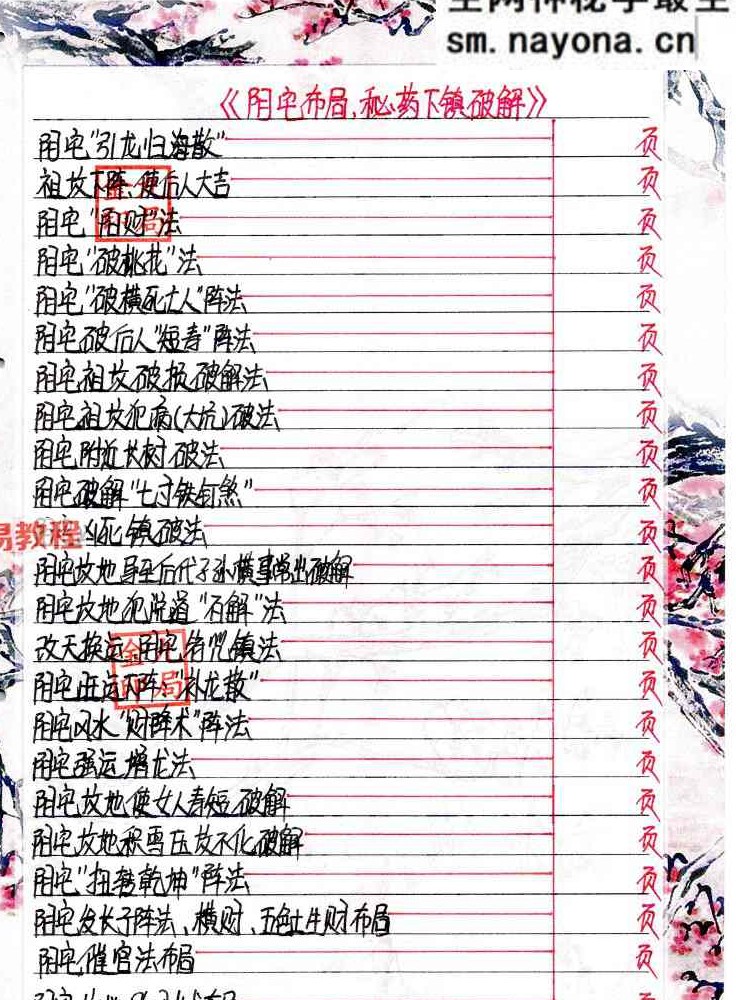 sm.nayona.cn
《阴宅布局、秘药下镇破解》
阴宅“引龙归海散” 页
祖坟下阵、使后人大吉 页
阴宅“阴财”法 页
阴宅“破桃花”法 页
阴宅“破横死亡人”阵法 页
阴宅破后人“短寿”阵法 页
阴宅祖坟破损破解法 页
阴宅祖坟犯病(大坑)破法 页
阴宅附近大树破法 页
阴宅破解“七寸铁钉煞” 页
凶死镇破法 页
易教程
阴宅坟地导至后代子孙横事常出破解 页
阴宅坟地犯说道“石解”法 页
改天换运、阴宅符咒镇法 页
阴宅旺运下阵、“补龙散” 页
阴宅风水“财阵术”阵法 页
阴宅强运增龙法 页
阴宅坟地使女人寿短破解 页
阴宅坟地积雪压坟不化破解 页
阴宅“扭转乾坤”阵法 页
阴宅发长子阵法、横财、五色土生财布局 页
阴宅催官法布局 页